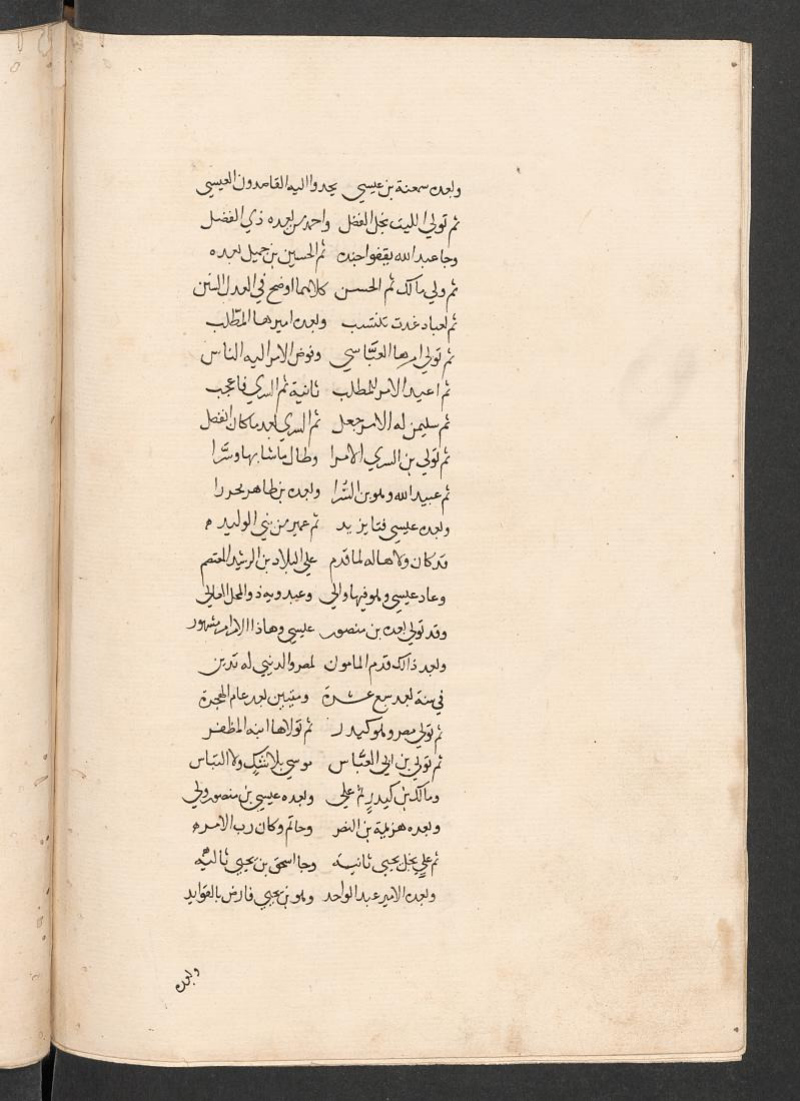 وبعده سمعنة بن عيسي يحدوا اليه القاصدون العيسي
ثم تولي الليث نجل الفضل واحمد من بعده ذي الفضل
وجا عبد الله يقفوا جنده ثم الحسين بن جميل بعده
ثم ولي مالك ثم الحسن كلاهما اوضح في العدل السنن
ثم لعباد غدت تنتسب وبعده اميرها المطلب
ثم تولي امرها العبّاسي وفوض الامر اليه الناس
ثم اعيد الامر للمطلب ثانية ثم السري فاعجب
ثم سليمن له الامر جعل ثم السري بعد ما كان انفصل
ثم تولي بن السري الامرا وطال ما شا بها وسرّا
ثم عبيد الله وهو بن السّرا وبعده بن طاهر تحررا
وبعده عيسي فتا يزيد ثم عمير من بني الوليد
قد كان ولاها له لما قدم علي البلاد بن الرشيد المعتصم
وعاد عيسي وهو فيها والي وعبدويه ذو المحل العالي
وقد تولي بعده بن منصور عيسي وهاذا الامر مشهور
وبعد ذالك قدم المامون لمصر والدنيي له تدين
في سنة بعد سبع عشرة وميتين بعد عام الهجرة
ثم تولي مصر وهو كيدر ثم تولاها ابنه المظفر
ثم تولي بن ابي العبّاس موسي بلا شكٍ ولا التباس
ومالك بن كيدرٍ ثم علي وبعده عيسي بن منصور ولي
وبعده هرثمة بن النضر وحاتم وكان رب الامره
ثم علي نجل يحيي ثانيه وجا اسحق بن يحيي تاليه
وبعده الامير عبد الواحد وهو بن يحيي فارض بالفوايد
وبعده